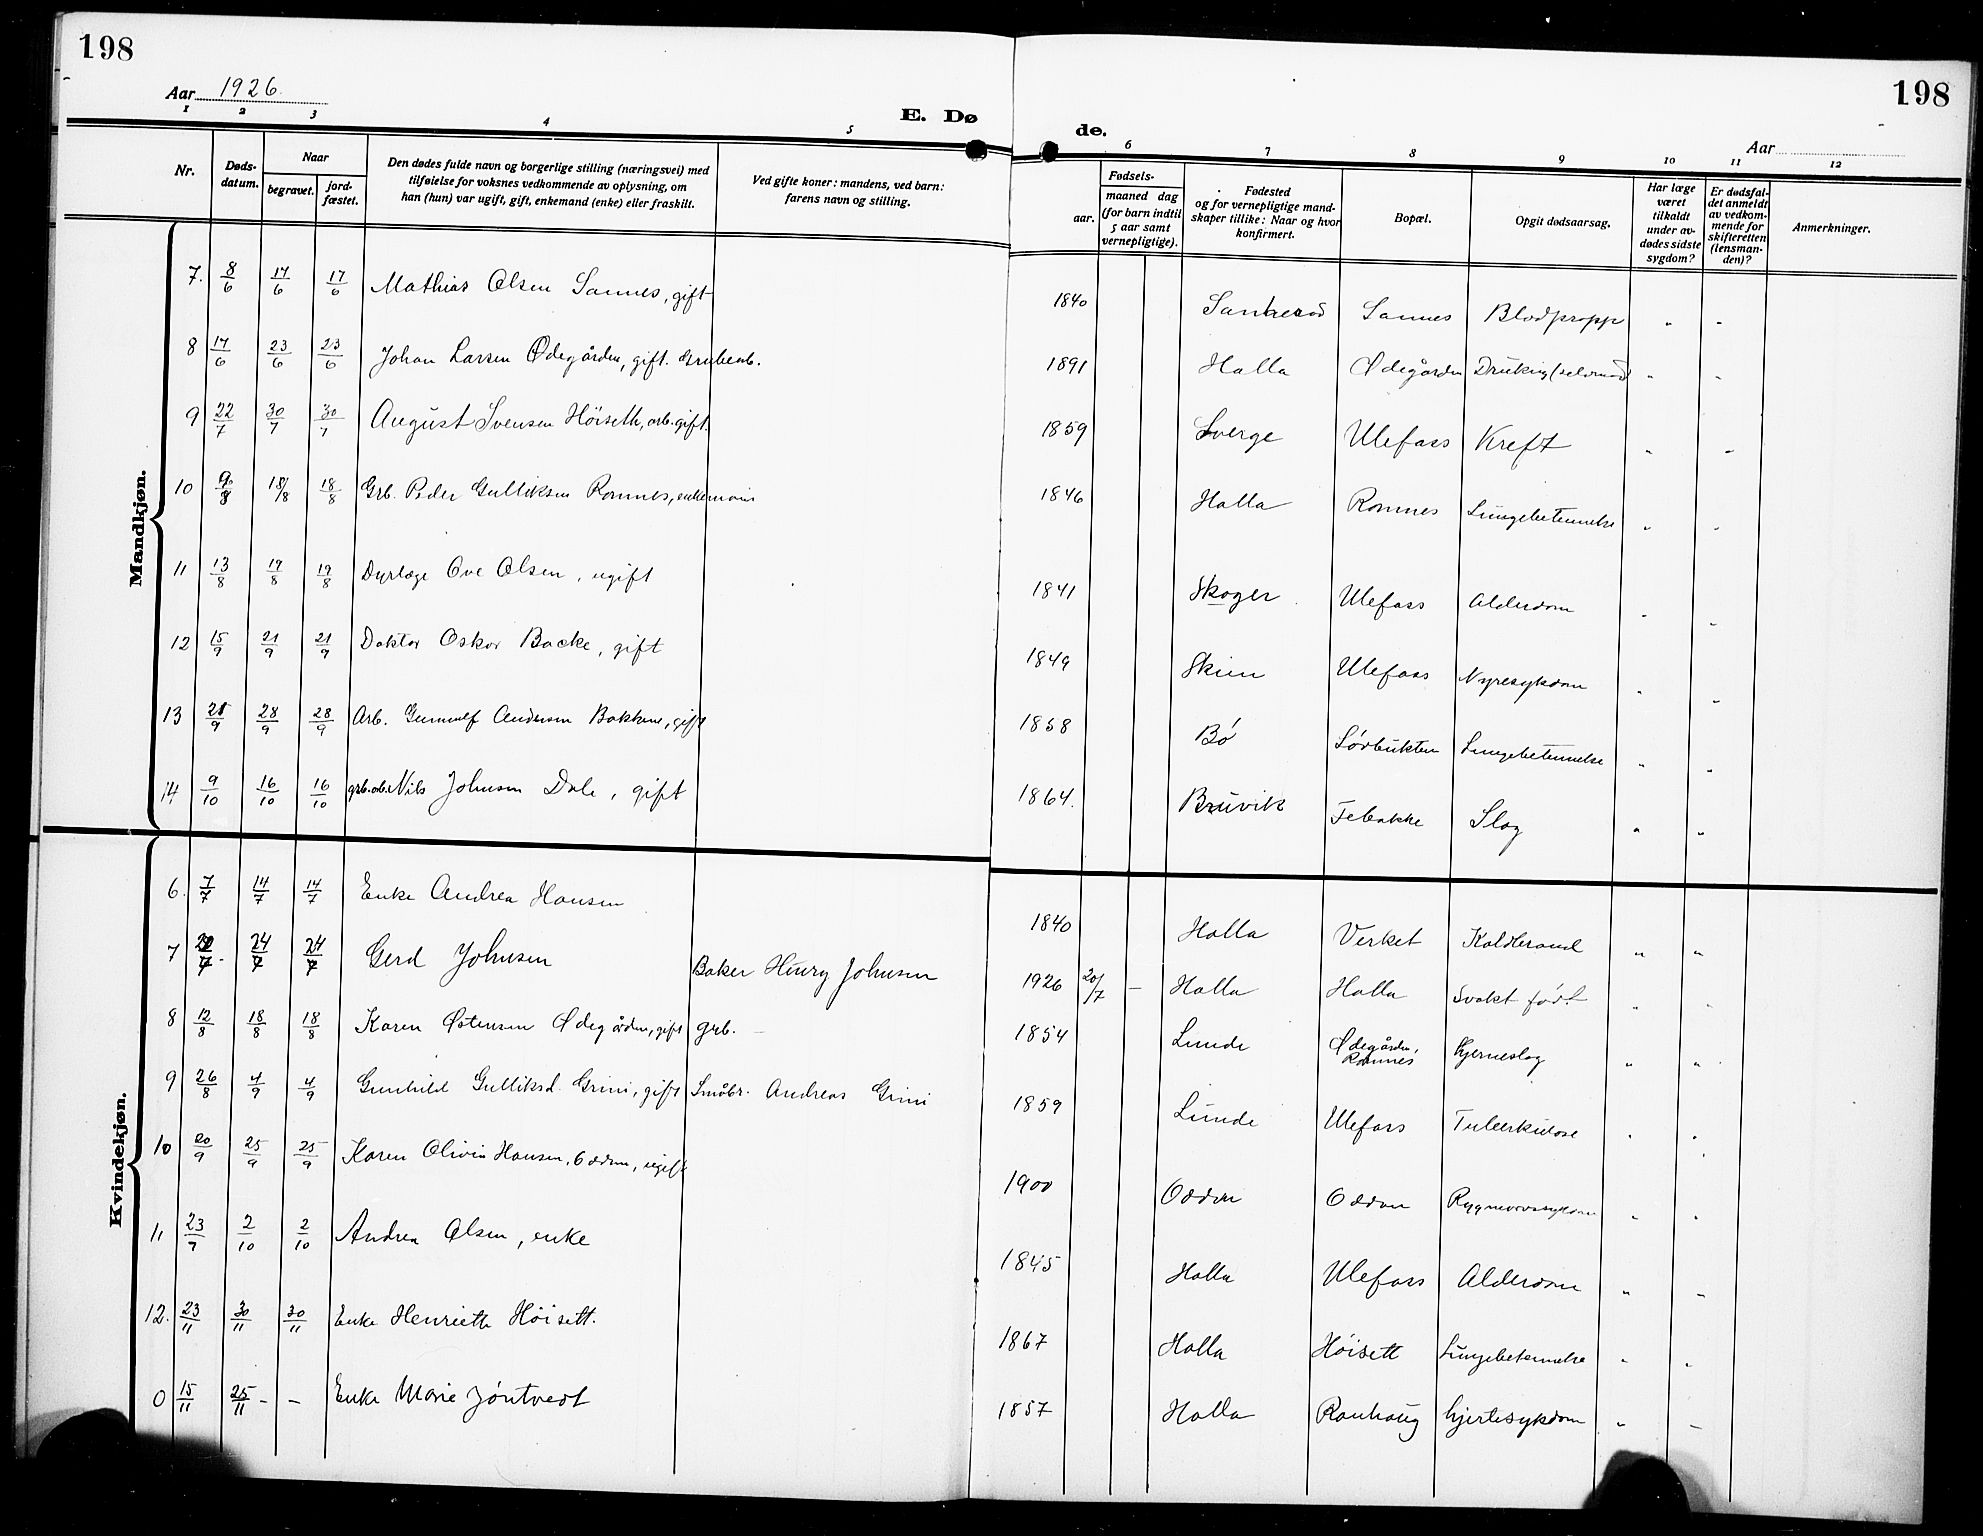 198
198
Aar 1926.
E. Døde.
Aar
1 2 3 4 5 6 7 8 9 10 11 12
Nr.
Døds-
datum.
Naar
begravet.
jord-
fæstet.
Den dødes fulde navn og borgerlige stilling (næringsvei) med
tilføielse for voksnes vedkommende av oplysning, om
han (hun) var ugift, gift, enkemand (enke) eller fraskilt.
Ved gifte koner: mandens, ved barn:
farens navn og stilling.
Fødsels-
aar.
maaned dag
(for barn indtil
5 aar samt
vernepligtige).
Fødested
og for vernepligtige mand-
skaper tillike: Naar og hvor
konfirmert.
Bopæl.
Opgit dødsaarsag.
Har læge
været
tilkaldt
under av-
dødes sidste
sygdom?
Er dødsfal-
det anmeldt
av vedkom-
mende for
skifteretten
(lensman-
den)?
Anmerkninger.
Mandkjøn.
7. 8/6 17/6 17/6 Mathias Olsen Sannes, gift 1840 Sannes Blodpropp " "
8 17/6 23/6 23/6 Johan Larsen Ødegården, gift. Grubearb. 1891 Holla Ødegården " "
9 22/7 30/7 30/7 August Svensen Höiseth, arb. gift. 1859 Sverge Ulefoss Kreft " "
10 18/8 18/8 Grb. Peder Gulliksen Romnes, enkemann 1846 Holla Romnes Lungebetennelse " "
11 13/8 19/8 19/8 Dyrlæge Ove Olsen, ugift 1841 Skoger Ulefoss Alderdom " "
12 15/9 21/9 21/9 Doktor Oskar Backe, gift 1849 Skien Ulefoss Nyresykdom " "
13 28/9 28/9 Arb. Gunnulf Andersen Bakkene, gift 1858 Bö Lövbukten Lungebetennelse " "
14 9/10 16/10 16/10 Nils Johnsen Dale, gift 1864. Bruvik Febakke Slag " "
Kvindekjøn.
6. 7/7 14/7 14/7 Enke Andrea Hansen 1840 Holla Verket Koldbrand " "
7 24/7 24/7 Gerd Johnsen Baker Henry Johnsen 1926 20/7 — Holla Holla Svakt født " "
8 12/8 18/8 18/8 Karen Østensen Ødegården, gift grb. — 1854 Lunde Ødegården, Romnes Hjerneslag " "
9 26/8 4/9 4/9 Gunhild Gulliksd. Grini, gift Småbr. Andreas Grini 1859 Lunde Ulefoss Tuberkulose " "
10 20/9 25/9 25/9 Karen Olivia Hansen, Odden, ugift 1900 Odden Odden Rygmarvssykdom " "
11 2/10 2/10 Andrea Olsen, enke 1845 Holla Ulefoss Alderdom " "
12. 23/11 30/11 30/11 Enke Henriette Höisett. 1867 Holla Höisett Lungebetennelse " "
0 15/11 25/11 – – Enke Marie Jöntvedt 1857 Holla Ronhaug hjertesykdom " —